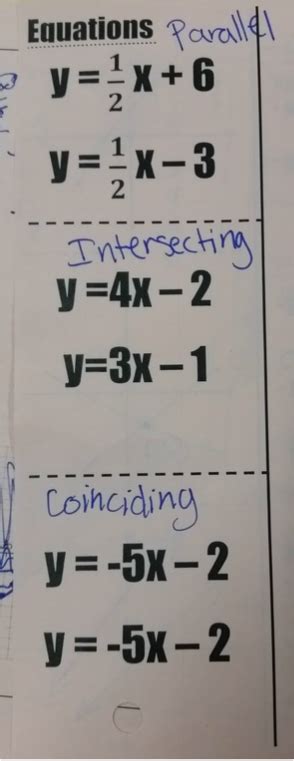 Equations Parallel
y = 1/2 x + 6
y = 1/2 x – 3
Intersecting
y =4x – 2
y=3x – 1
Coinciding
y = -5x – 2
y = -5x – 2